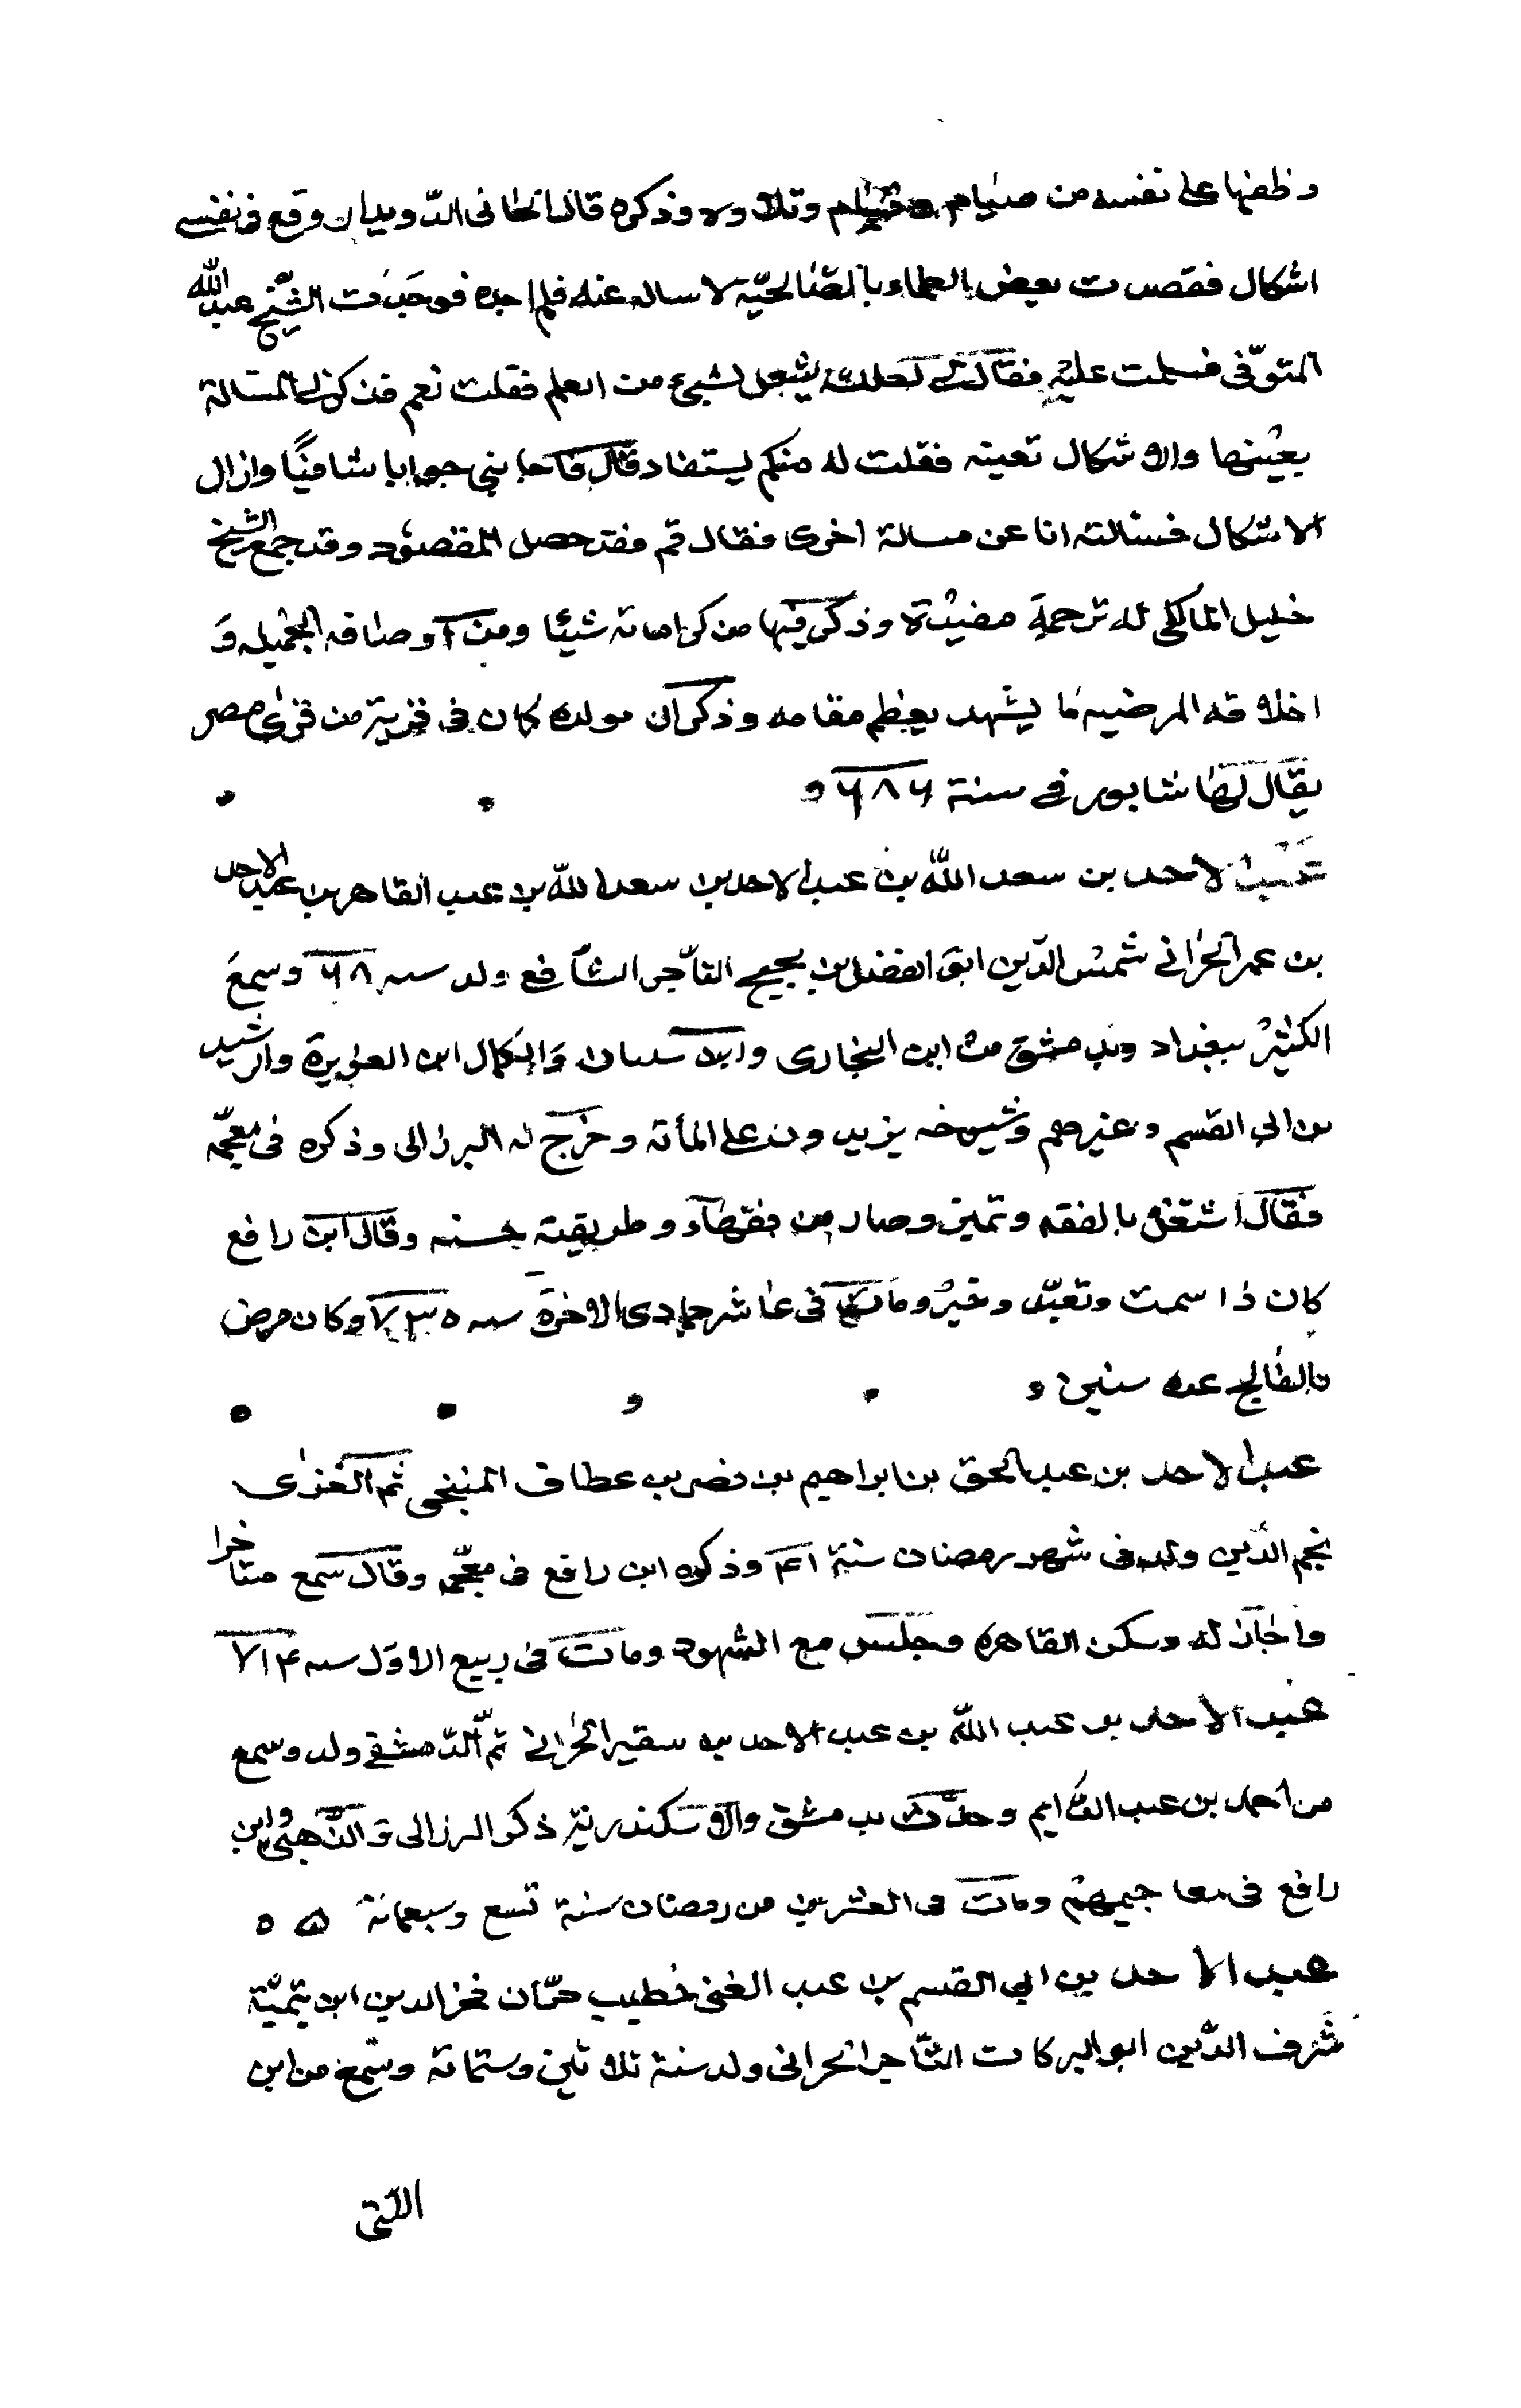 وظفها على نفسه من صيام وقيام وتلاوه وذكره قال الحافى الدويدار وقع فى نفسى
اشكال فقصدت بعض العلماء بالصالحيّة لاساله عنه فلم اجده فوجدت الشيخ عبد الله
المتوفى فسلمت عليه فقال لى لعلك يشغل لشيء من العلم فقلت نعم فذكر لى المسالة
بعينها والاشكال تعينه فقلت له منكم يستفاد قال فاجابنى جوابا شافيًا وازال
الاشكال فسالته انا عن مسالة اخرى فقال قم فقد حصل المقصود وقد جمع الشيخ
خليل المالكى له ترجمة مفيدة وذكر فيها من كراماته شيئا ومن اوصافه الجميله و
اخلاقه المرضيه ما يشهد بعظم مقامه وذكر ان مولده كان فى قرية من قرى مصر
يقال لها شابور فى سنة ٦٨٦
عبد الاحد بن سعد الله بن عبد الاحد بن سعد الله بن عبد القاهر بن عبد الاحد
بن عمر الحرانى شمس الدين ابو الفضل بن بحيح التاجر الشافع ولد سنه ٦٨ وسمع
الكثير ببغداد وبدمشق من ابن البخارى وابن سسان والكمال ابن العويرة والرشيد
بن ابى القسم وغيرهم وشيوخه يزيدون على المأتة وخرج له البرزالى وذكره فى معجمه
فقال اشتغل بالفقه وتميز وصار من فقهاء وطريقة حسنه وقال ابن رافع
كان ذا سمت وتعبد وخير ومات فى عاشر جمادى الاخرة سنه ٧٣٥ وكان مرض
بالفالج عده سنين
عبد الاحد بن عبد الحق بن ابراهيم بن نصر بن عطاف المنبخى ثم الغزى
نجم الدين ولد فى شهر رمضان سنة ٤١ وذكره ابن رافع فى معجمه وقال سمع متاخرا
واجاز له وسكن القاهره وجلس مع الشهود ومات فى ربيع الاول سنه ٧١٤
عبد الاحد بن عبد الله بن عبد الاحد بن سقير الحرانى ثم الدمشقى ولد وسمع
من احمد بن عبد الدايم وحدّث بدمشق والاسكندرية ذكر البرزالى والذهبى وابن
رافع فى معاجيمهم ومات فى العشرين من رمضان سنة تسع وسبعمائة
عبد الاحد بن ابى القسم بن عبد الغنى خطيب حرّان فخر الدين ابن تيمية
شرف الدين ابو البركات التاجر الحرانى ولد سنة ثلاثين وستمائة وسمع من ابن
اللتى